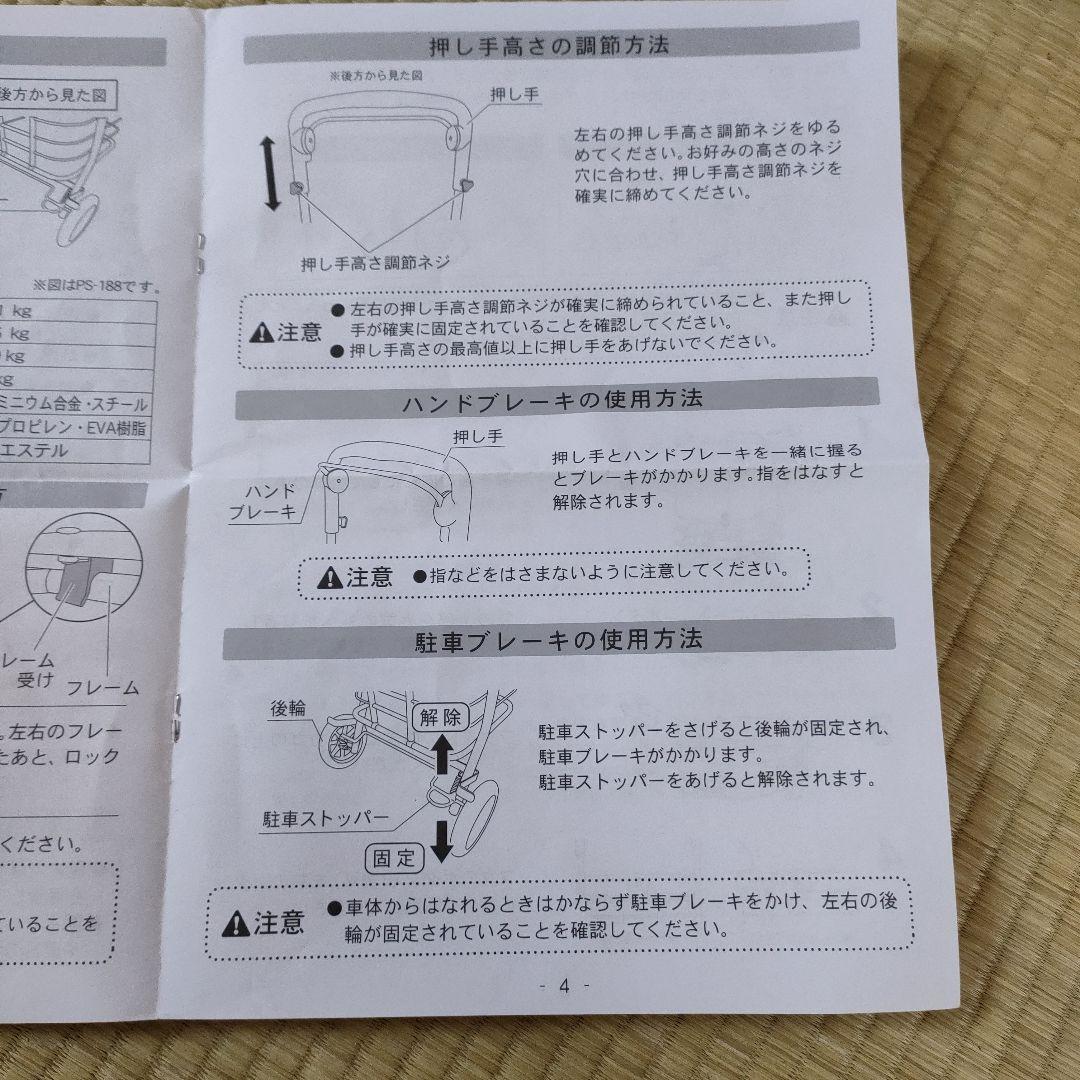 後方から見た図
※図はPS-188です。
kg
kg
kg
kg
ミニウム合金・スチール
プロピレン・EVA樹脂
エステル
レーム
受け
フレーム
。左右のフレー
たあと、ロック
ください。
ていることを
押し手高さの調節方法
※後方から見た図
押し手
左右の押し手高さ調節ネジをゆる
めてください。お好みの高さのネジ
穴に合わせ、押し手高さ調節ネジを
確実に締めてください。
押し手高さ調節ネジ
注意
●左右の押し手高さ調節ネジが確実に締められていること、また押し
手が確実に固定されていることを確認してください。
●押し手高さの最高値以上に押し手をあげないでください。
ハンドブレーキの使用方法
押し手
ハンド
ブレーキ
押し手とハンドブレーキを一緒に握る
とブレーキがかかります。指をはなすと
解除されます。
注意 ●指などをはさまないように注意してください。
駐車ブレーキの使用方法
後輪
解除
駐車ストッパー
固定
駐車ストッパーをさげると後輪が固定され、
駐車ブレーキがかかります。
駐車ストッパーをあげると解除されます。
注意
●車体からはなれるときはかならず駐車ブレーキをかけ、左右の後
輪が固定されていることを確認してください。
- 4 -